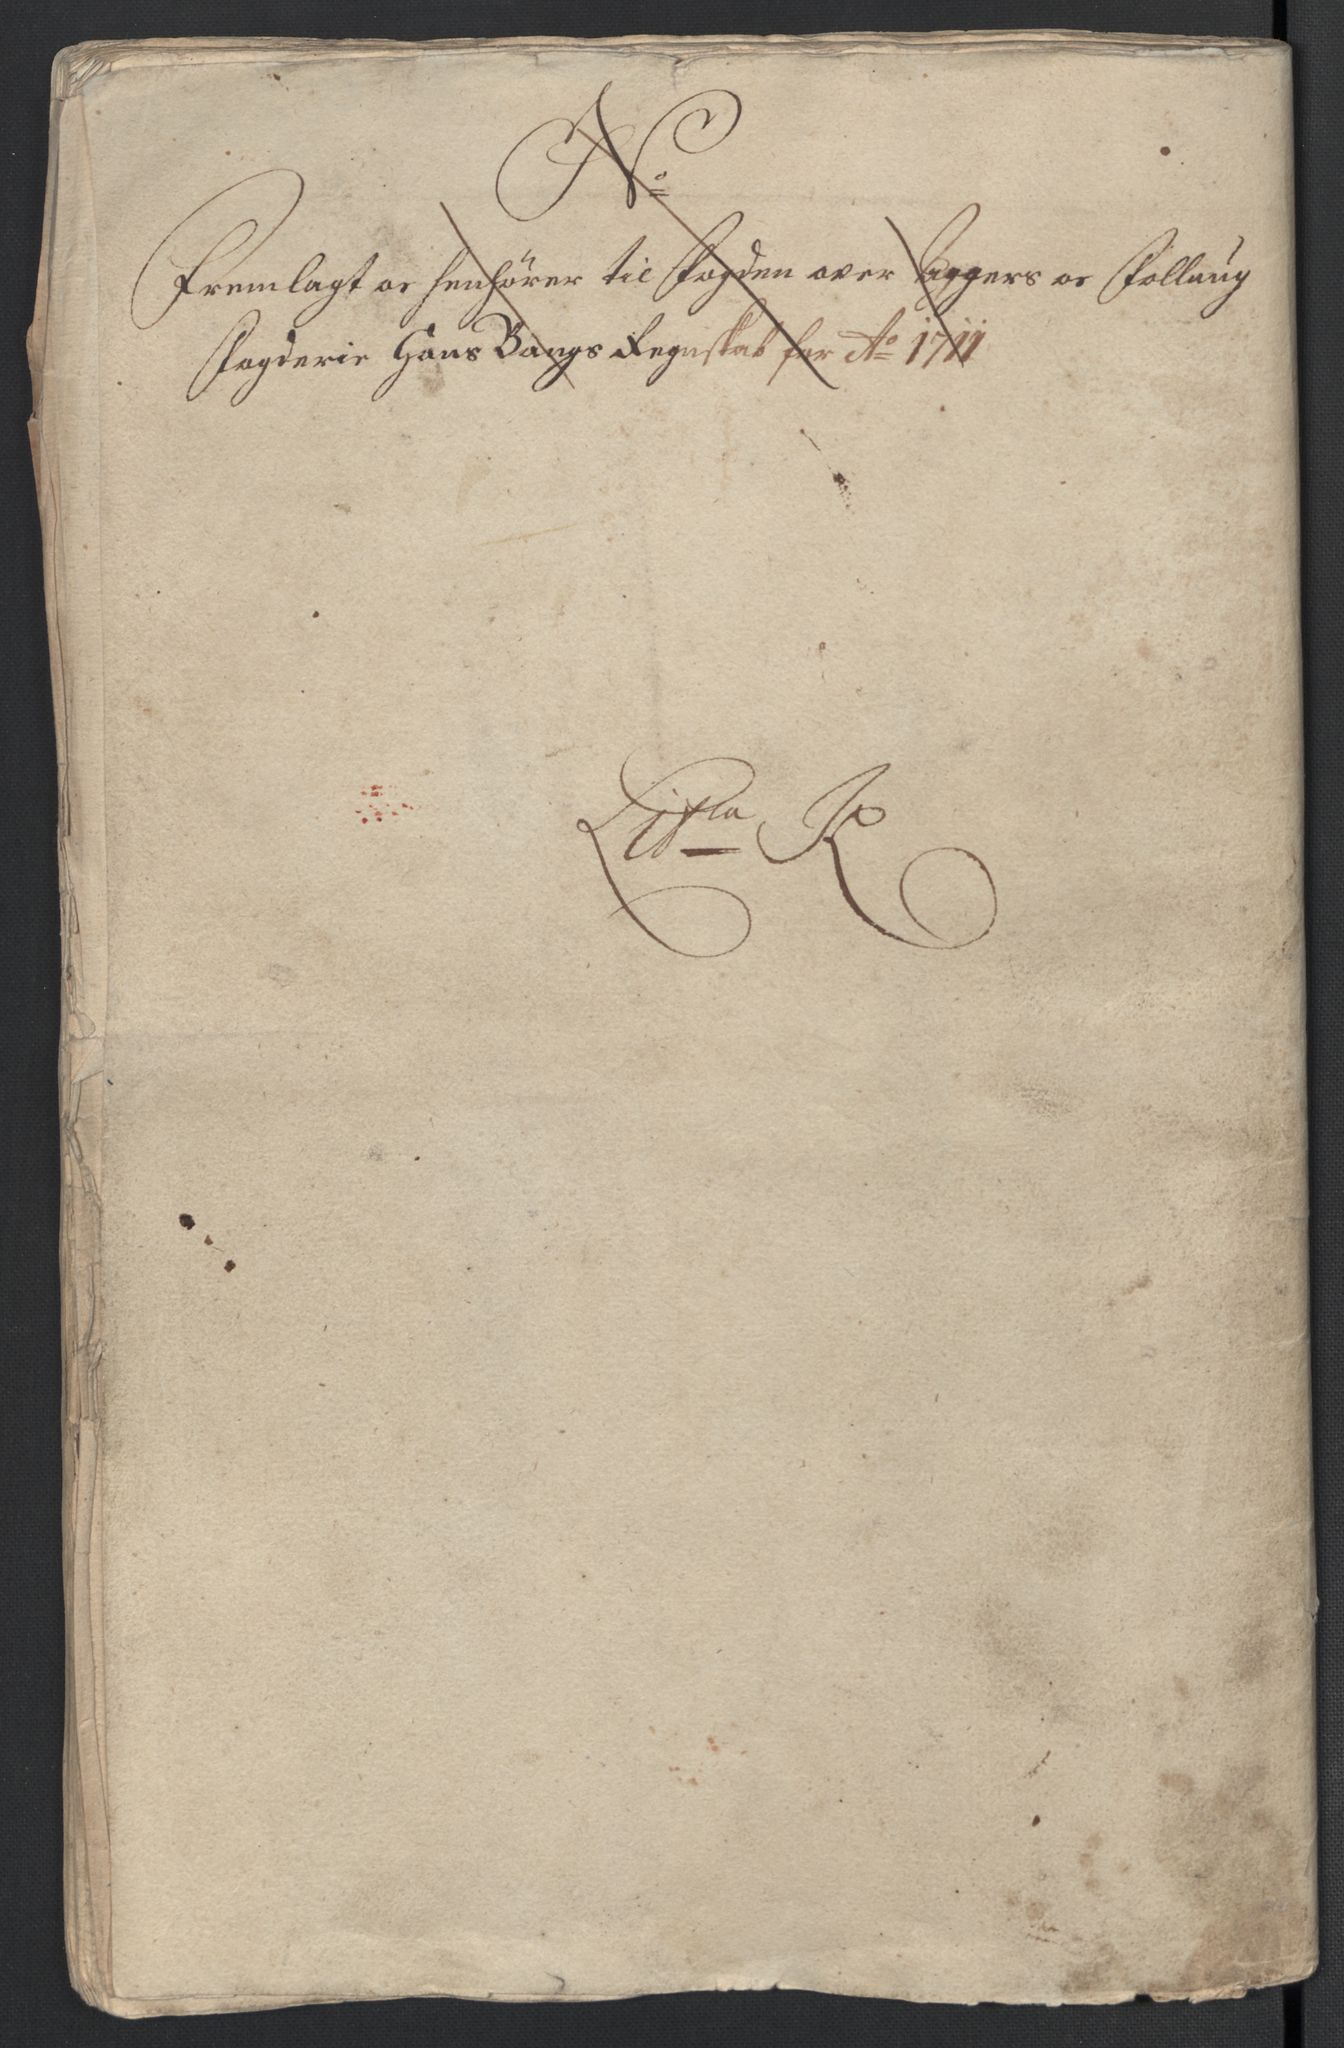 No
Fremlagt oc henhører til Fogden over Aggers oc Follaug
Fogderie Hans Bangs Regnskab for Ao 1711
Litra K